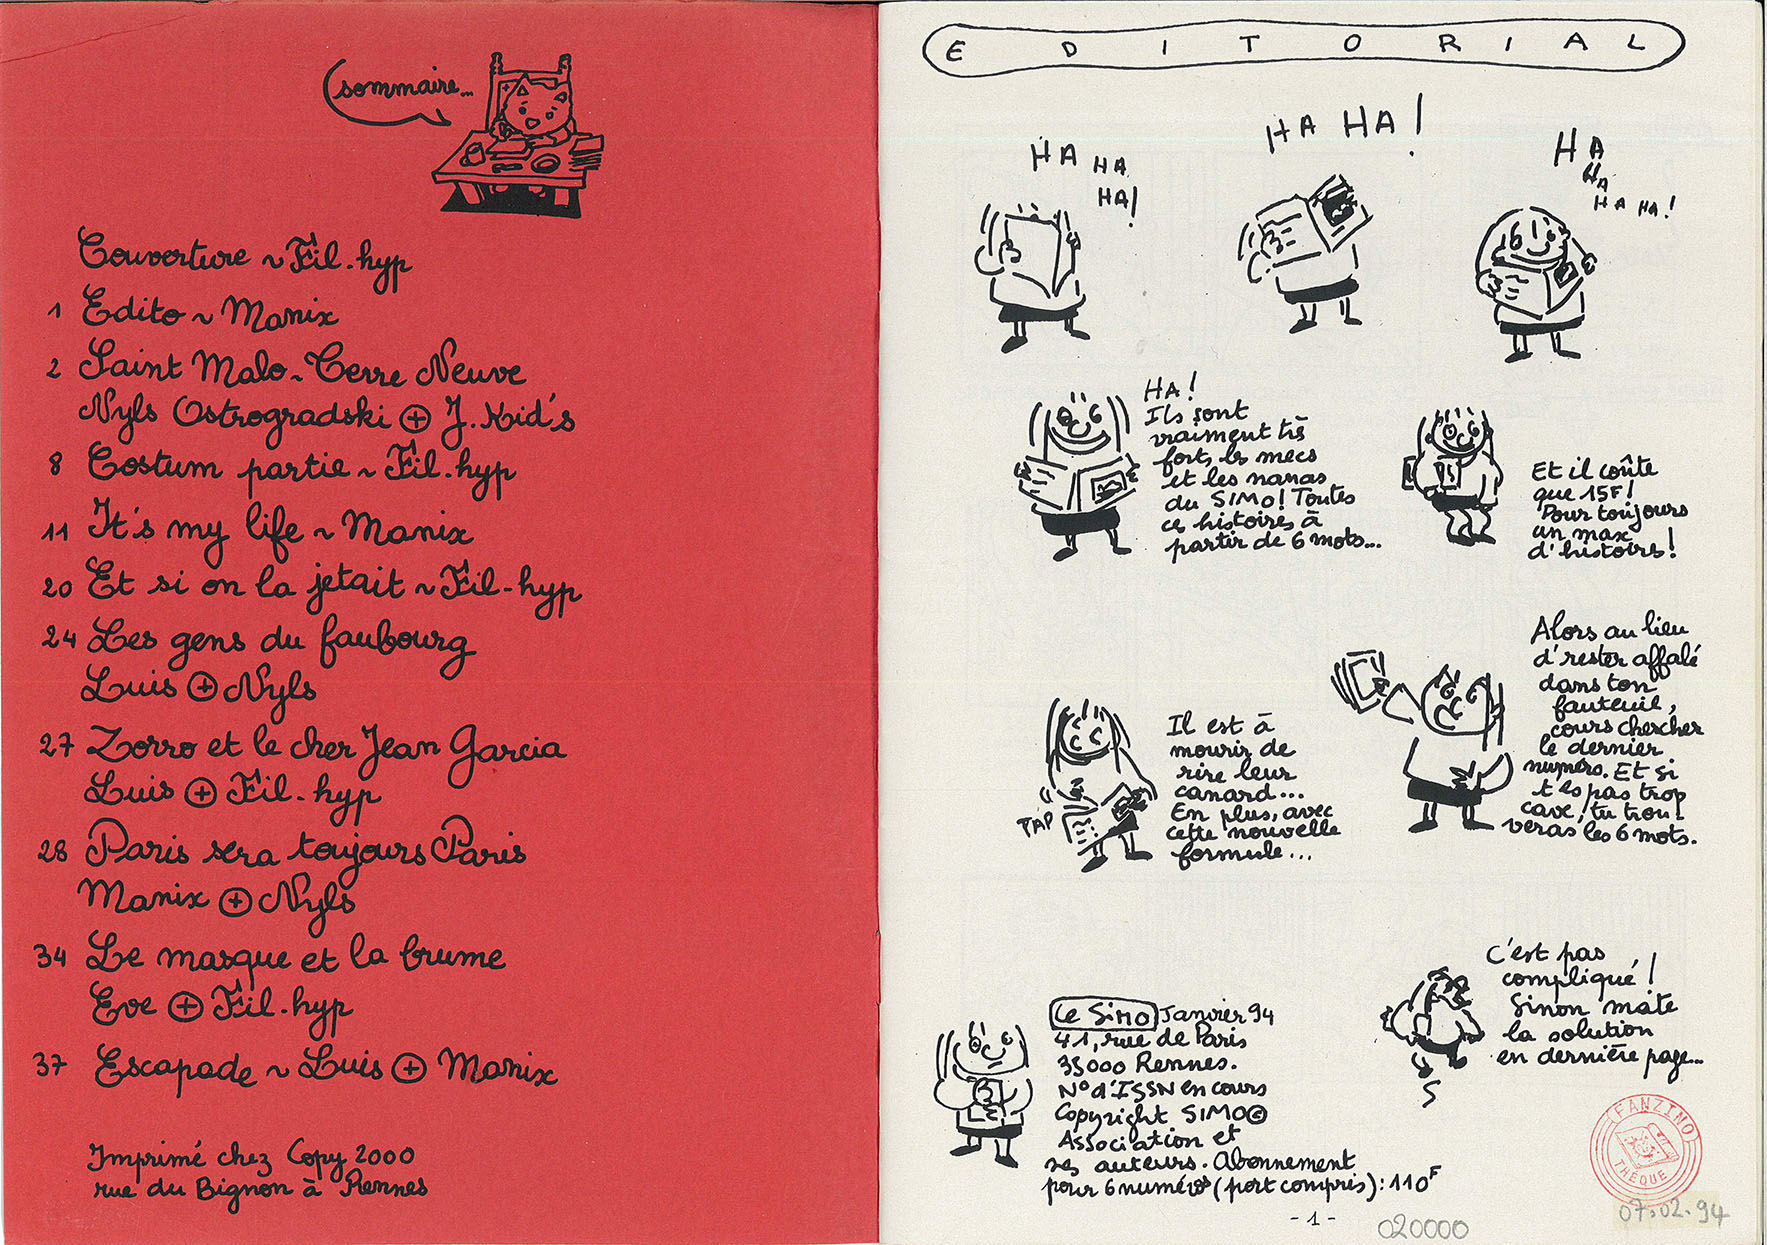 sommaire...
Couverture ~ Fil-hyp
1 Edito ~ Manix
2 Saint Malo ~ Terre Neuve
Nyls Ostrogradski + J. Kid's
8 Costum partie ~ Fil-hyp
11 It's my life ~ Manix
20 Et si on la jetait ~ Fil-hyp
24 Les gens du faubourg
Luis + Nyls
27 Zorro et le cher Jean Garcia
Luis + Fil-hyp
28 Paris sera toujours Paris
Manix + Nyls
34 Le masque et la brume
Eve + Fil-hyp
37 Escapade ~ Luis + Manix
Imprimé chez Copy 2000
rue du Bignon à Rennes
EDITORIAL
HA HA
HA!
HA HA!
HA
HA
HA HA!
HA!
Ils sont
vraiment très
fort, les mecs
et les nanas
du SIMO! Toutes
ce histoires à
partir de 6 mots...
Et il coûte
que 15F!
Pour toujours
un max
d'histoires!
TAP
Il est à
mourir de
rire leur
canard...
En plus, avec
cette nouvelle
formule...
Alors au lieu
d'rester affalé
dans ton
fauteuil,
cours chercher
le dernier
numéro. Et si
t'es pas trop
cave, tu trou-
veras les 6 mots.
C'est pas
compliqué!
Sinon mate
la solution
en dernière page...
Le SIMO Janvier 94
41, rue de Paris
35000 Rennes.
N° d'ISSN en cours
Copyright SIMO©
Association et
ses auteurs. Abonnement
pour 6 numéros (port compris): 110F
- 1 -
FANZINO
THÈQUE
07.02.94
020000